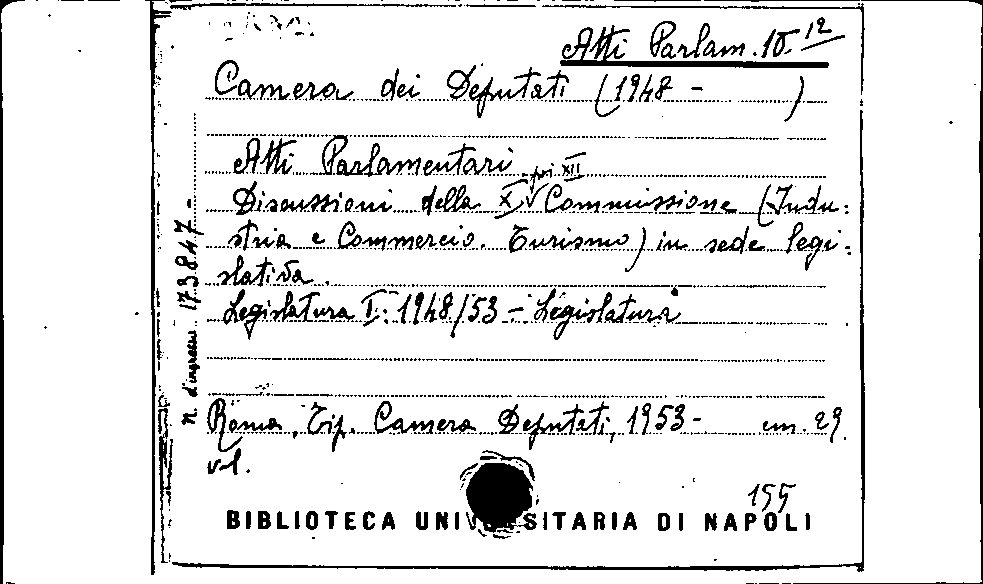 Atti Parlam. 10.12
Camera dei Deputati (1948 - )
Atti Parlamentari
poi XII
Discussioni della X Commissione (Indu:
stria e Commercio. Turismo) in sede legi:
slativa.
Legislatura I: 1948/53 - Legislatura
Roma, Tip. Camera Deputati, 1953- cm. 29.
vol.
155
BIBLIOTECA UNIVERSITARIA DI NAPOLI
n. d'ingresso 173847-